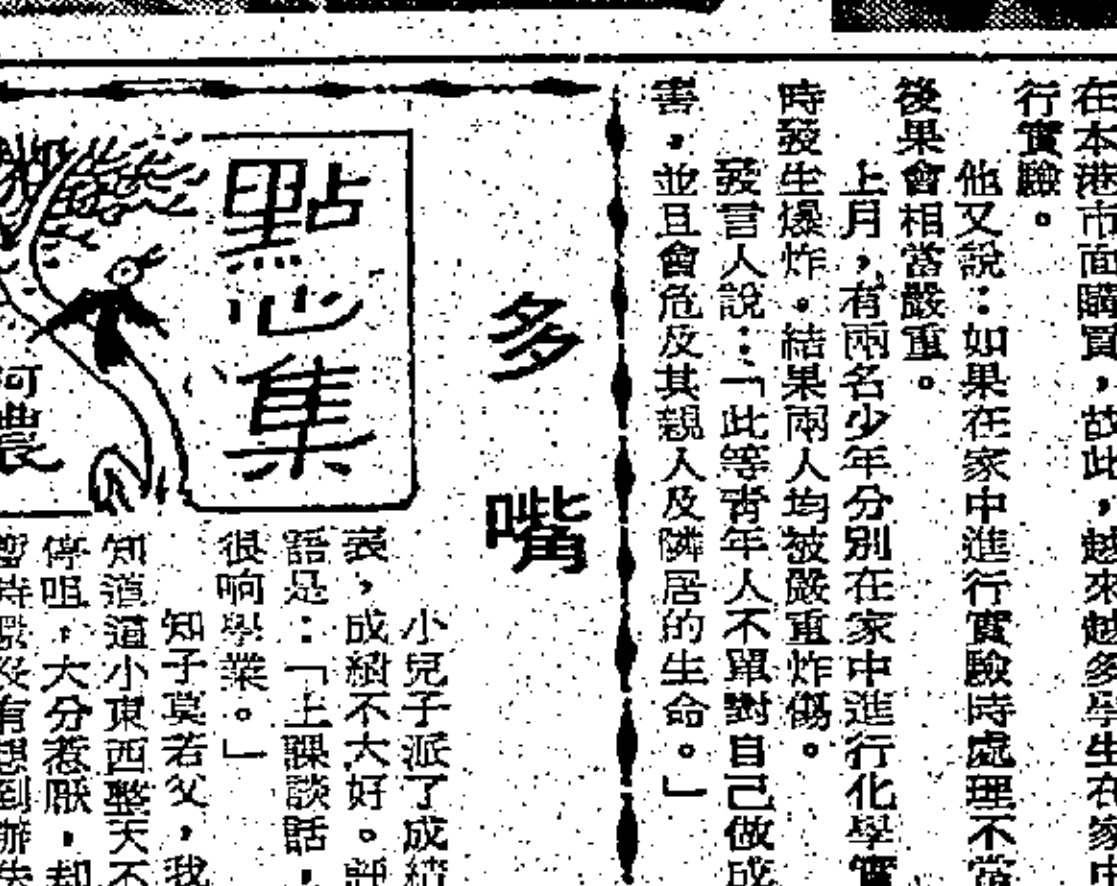 在本港市面購買，故此，越來越多學生在家中
行實驗。
他又說：如果在家中進行實驗時處理不當
後果會相當嚴重。
上月，有兩名少年分別在家中進行化學實
時發生爆炸。結果兩人均被嚴重炸傷。
發言人說：「此等青年人不單對自己做成
害，並且會危及其親人及隣居的生命。」
多嘴
點心集
阿農
小兒子派了成績
表，成績不大好。評
語是：「上課談話，
很响學業。」
知子莫若父，我
知道這小東西整天不
停咀，大分惹厭，却
有想到辦法